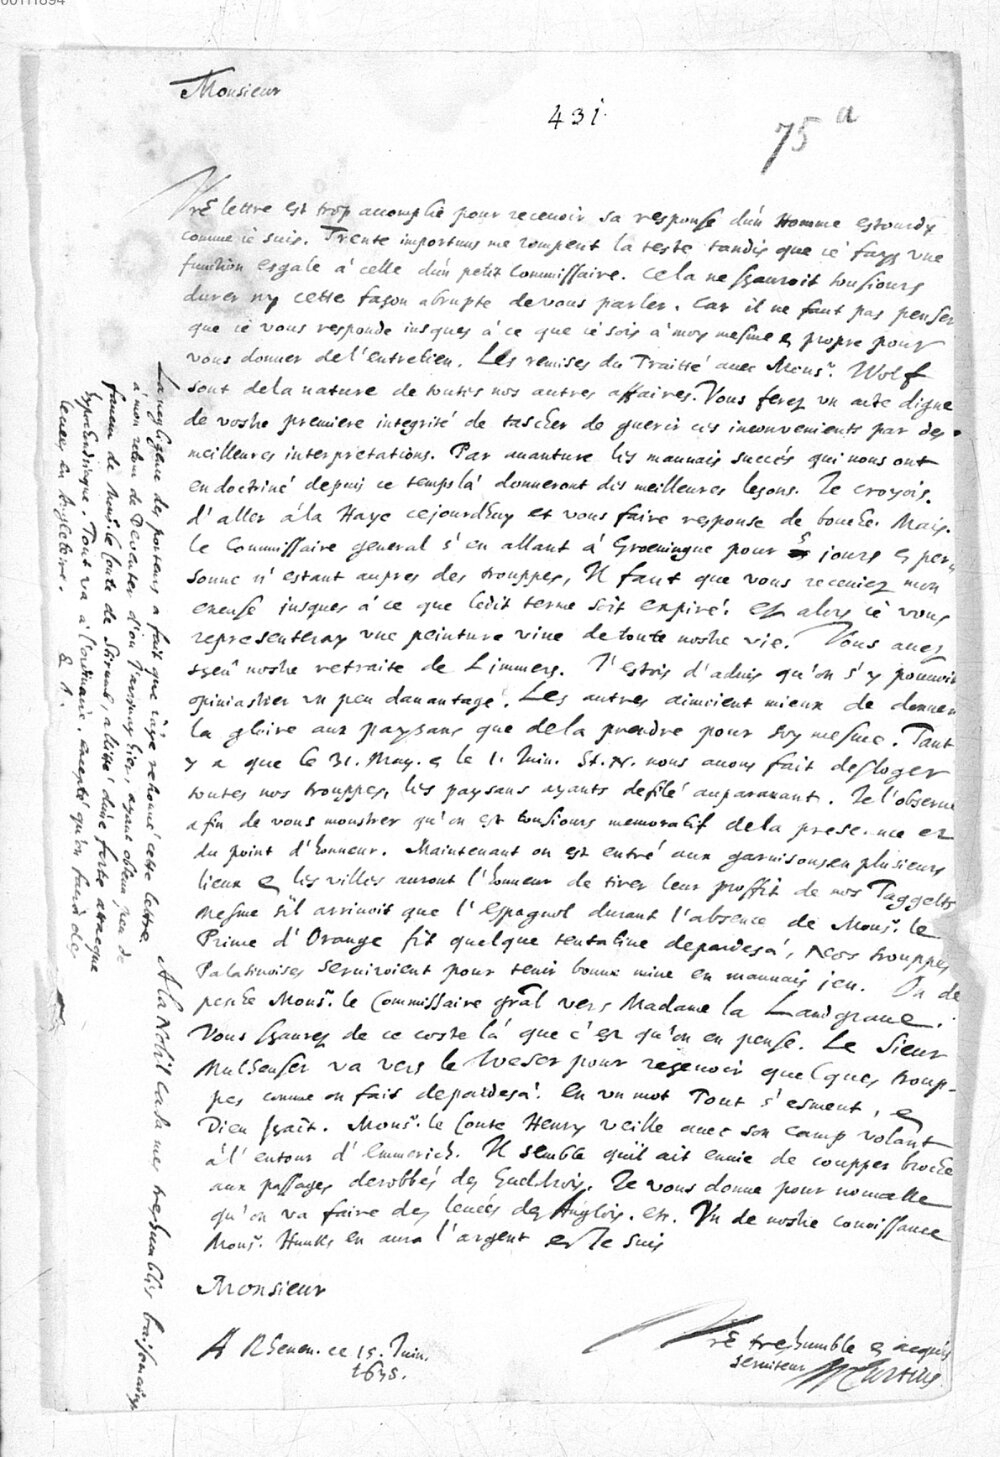 00171894
Monsieur
431.
75 a
Vre lettre est trop accomplie pour recevoir sa response d'un Homme estourdy
comme ie suis. Trente importuns me rompent la teste tandis que ie fays une
function esgale à celle d'un petit Commissaire. Cela ne sçauroit tousiours
durer ny cette façon abrupte de vous parler. Car il ne faut pas penser
que ie vous responde iusques à ce que ie sois à moy mesme & propre pour
vous donner de l'entretien. Les remises du Traitté avec Monsr. Wolf
sont de la nature de toutes nos autres affaires. Vous ferez un acte digne
de vostre premiere integrité de tascher de guerir ces inconvenients par des
meilleures interpretations. Par avanture les mauvais succés qui nous ont
endoctriné depuis ce temps là donneront des meilleures leçons. Je croyois
d'aller à la Haye cejourdhuy et vous faire response de bouche. Mais
le Commissaire general s'en allant à Groeningue pour 5 jours & per-
sonne n'estant aupres des trouppes, Il faut que vous receviez mon
excuse jusques à ce que ledit terme soit expiré. et alors ie vous
representeray une peinture vive de toute nostre vie. Vous avez
sçeu nostre retraite de Limmers. J'estois d'advis qu'on s'y pouvoit
opiniastrer un peu davantage. Les autres aimoient mieux de donner
la gloire aux paysans que de la prendre pour soy mesme. Tant
y a que le 31. May. & le 1. Juin. St. N. nous avons fait desloger
toutes nos trouppes, les paysans ayants defilé auparavant. Je l'observe
afin de vous monstrer qu'on est tousiours memoratif de la presence et
du point d'honneur. Maintenant on est entré aux garnisons en plusieurs
lieux & les villes auront l'honneur de tirer leur proffit de nos Paggelts
Mesme s'il arrivoit que l'Espagnol durant l'absence de Monsr. le
Prince d'Orange fit quelque tentative depardeçà, nos trouppes
Palatinoises serviroient pour tenir bonne mine en mauvais jeu. On de
peche Monsr. le Commissaire gnãl vers Madame la Landgrave.
Vous sçaurez de ce costé là que c'est qu'on en pense. Le Sieur
va vers le Weser pour recevoir quelques troup-
pes comme on fais depardeçà. En un mot Tout s'esment, &
Dieu sçait. Monsr. le Conte Henry veille avec son camp volant
à l'entour d'Emmerich. Il semble qu'il ait envie de coupper broche
aux passages desrobbés des. Je vous donne pour nouvelle
qu'on va faire des levées des Anglois. etc. Un de nostre conoissance
Monsr. Hunks en aura l'argent et Je suis
Monsieur
A Rhenen. ce 15. Juin.
1638.
Vre treshumble & acquis
serviteur WCurtius.
La negligence des porteurs a fait que i'aye retrouvé cette lettre
à mon retour de Deventer d'ou hier, ayant obtenu peu de
faveur de Monsr. le Conte de, a d'une forte attaque
hypochondriaque. Tout va à l'ordinaire. excepté qu'on faira des
levees en Angleterre. &c.
A la Nobil. Casa mes treshumbles baisemains